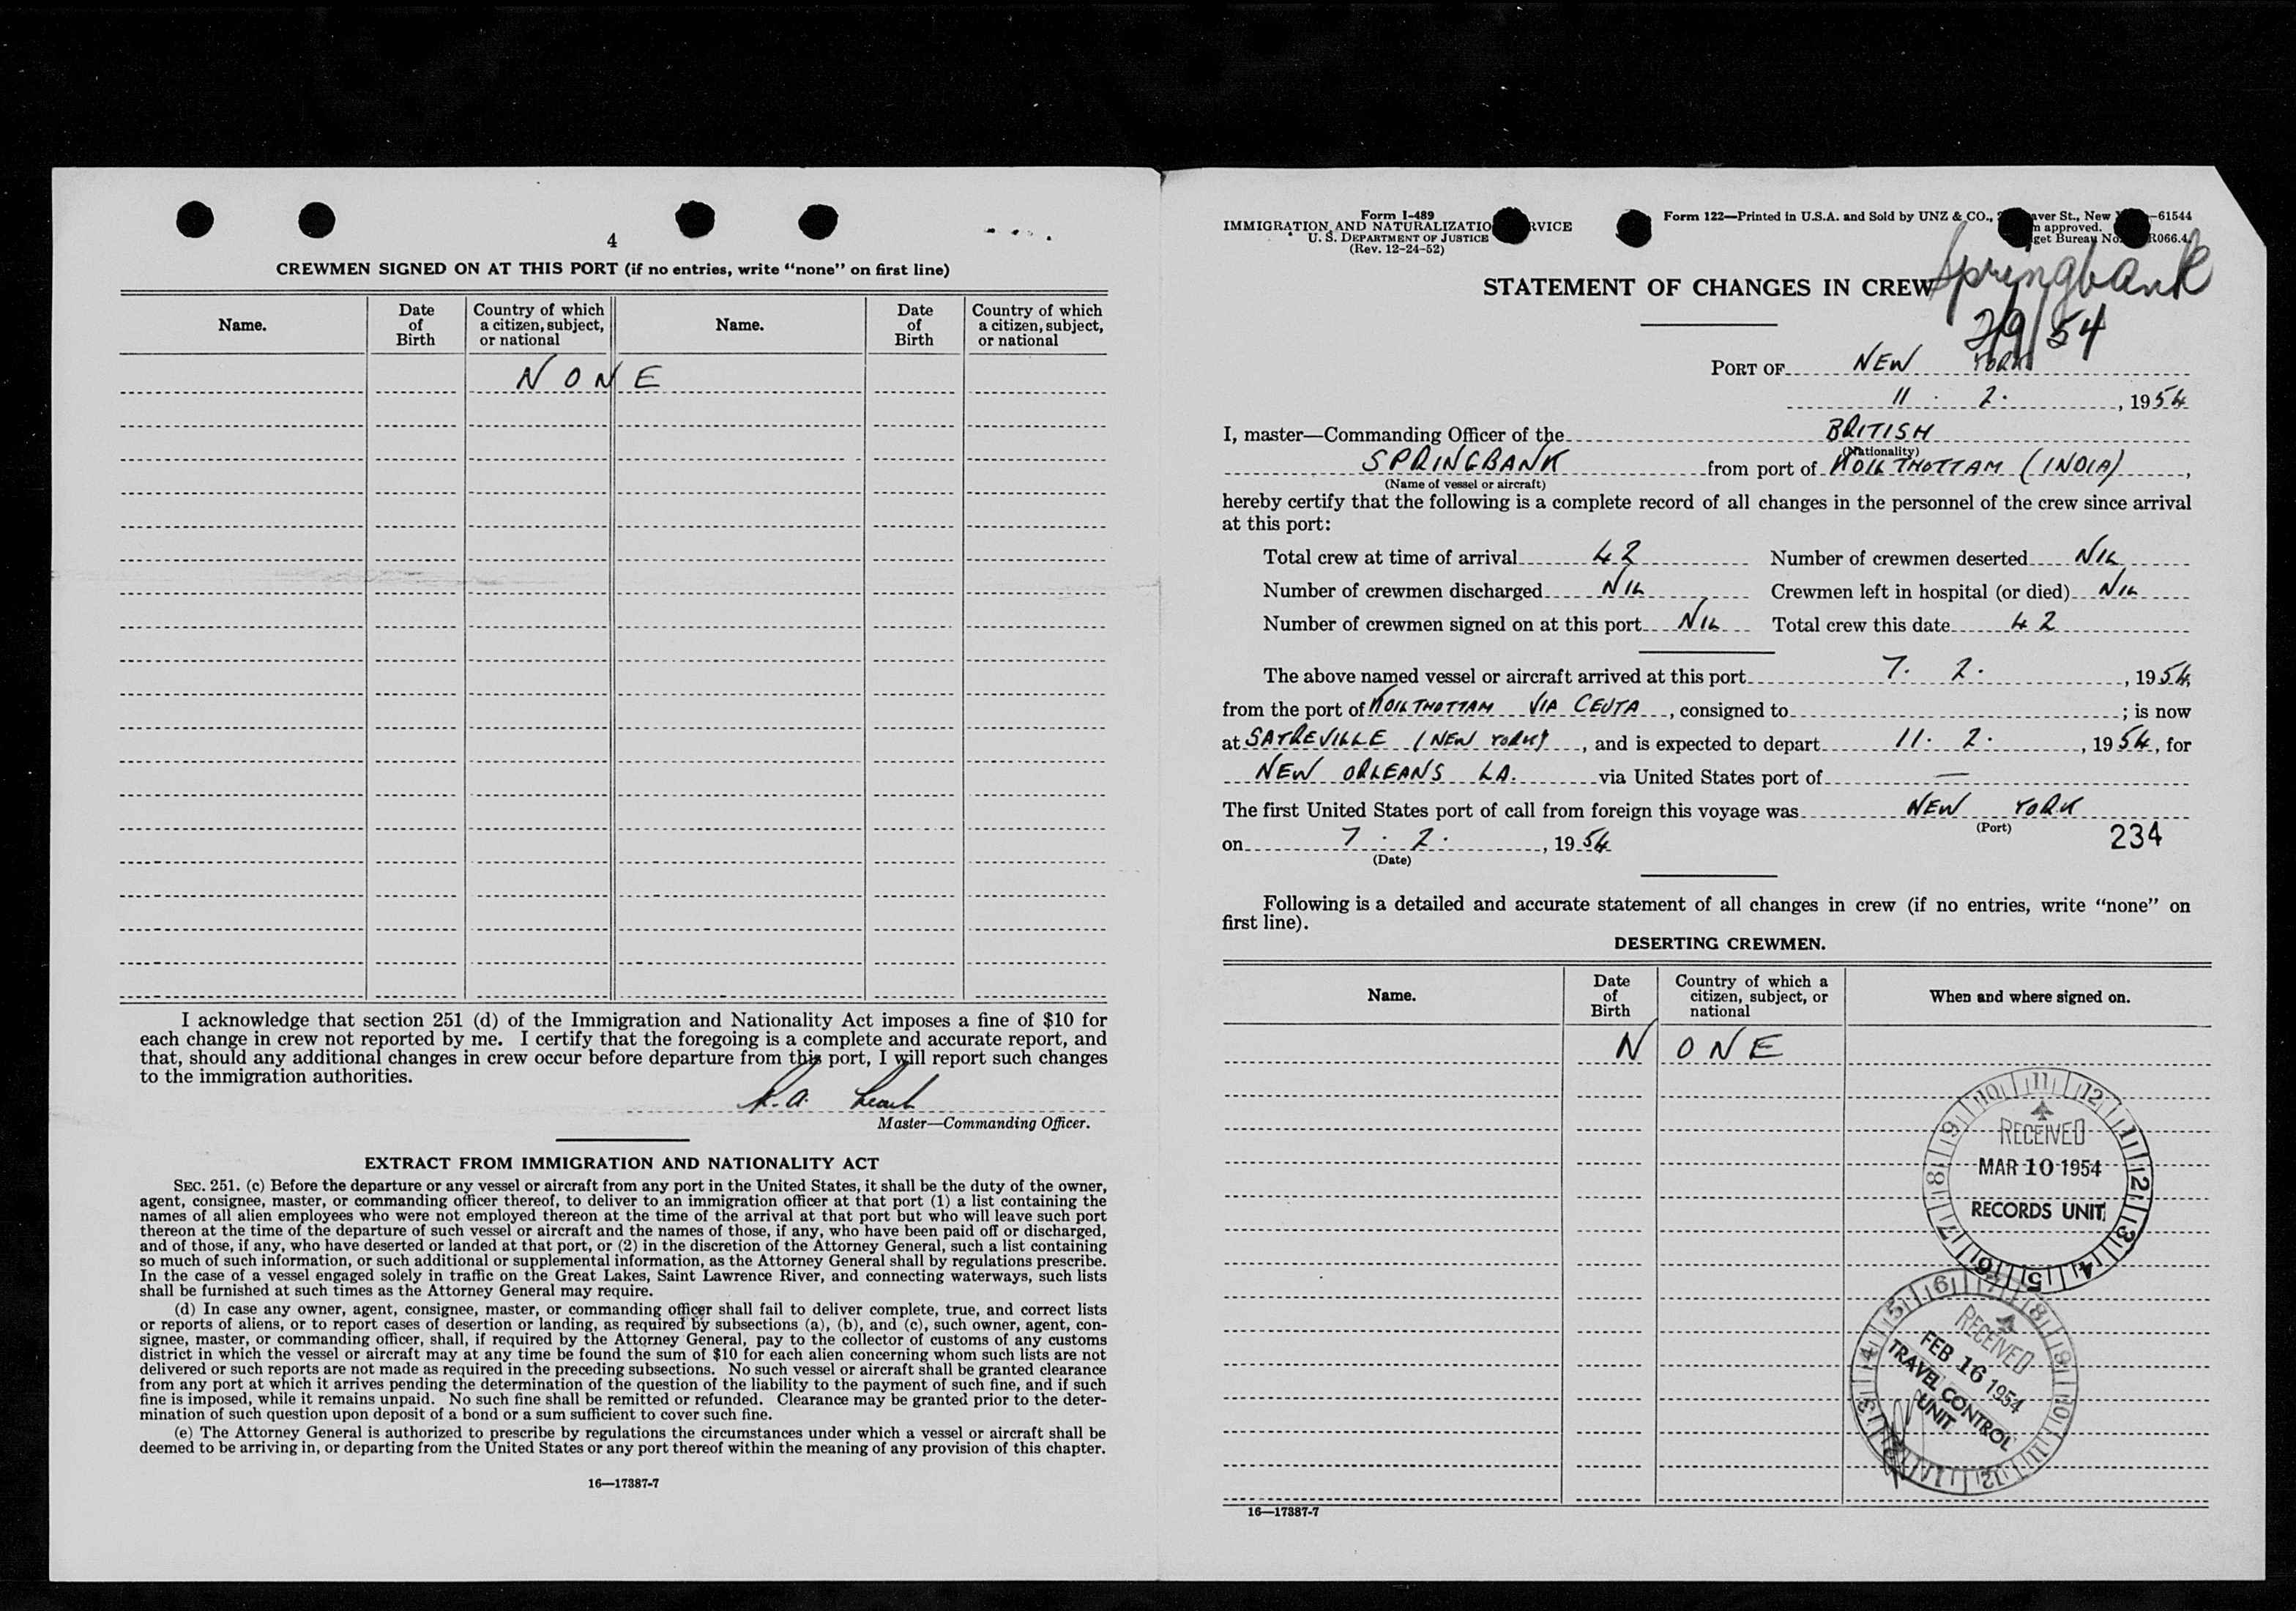 4
CREWMEN SIGNED ON AT THIS PORT (if no entries, write “none” on first line)
Name. Date of Birth Country of which a citizen, subject, or national Name. Date of Birth Country of which a citizen, subject, or national
NONE
I acknowledge that section 251 (d) of the Immigration and Nationality Act imposes a fine of $10 for
each change in crew not reported by me. I certify that the foregoing is a complete and accurate report, and
that, should any additional changes in crew occur before departure from this port, I will report such changes
to the immigration authorities.
Master—Commanding Officer.
EXTRACT FROM IMMIGRATION AND NATIONALITY ACT
SEC. 251. (c) Before the departure or any vessel or aircraft from any port in the United States, it shall be the duty of the owner,
agent, consignee, master, or commanding officer thereof, to deliver to an immigration officer at that port (1) a list containing the
names of all alien employees who were not employed thereon at the time of the arrival at that port but who will leave such port
thereon at the time of the departure of such vessel or aircraft and the names of those, if any, who have been paid off or discharged,
and of those, if any, who have deserted or landed at that port, or (2) in the discretion of the Attorney General, such a list containing
so much of such information, or such additional or supplemental information, as the Attorney General shall by regulations prescribe.
In the case of a vessel engaged solely in traffic on the Great Lakes, Saint Lawrence River, and connecting waterways, such lists
shall be furnished at such times as the Attorney General may require.
(d) In case any owner, agent, consignee, master, or commanding officer shall fail to deliver complete, true, and correct lists
or reports of aliens, or to report cases of desertion or landing, as required by subsections (a), (b), and (c), such owner, agent, con-
signee, master, or commanding officer, shall, if required by the Attorney General, pay to the collector of customs of any customs
district in which the vessel or aircraft may at any time be found the sum of $10 for each alien concerning whom such lists are not
delivered or such reports are not made as required in the preceding subsections. No such vessel or aircraft shall be granted clearance
from any port at which it arrives pending the determination of the question of the liability to the payment of such fine, and if such
fine is imposed, while it remains unpaid. No such fine shall be remitted or refunded. Clearance may be granted prior to the deter-
mination of such question upon deposit of a bond or a sum sufficient to cover such fine.
(e) The Attorney General is authorized to prescribe by regulations the circumstances under which a vessel or aircraft shall be
deemed to be arriving in, or departing from the United States or any port thereof within the meaning of any provision of this chapter.
16—17387-7
Form I-489
IMMIGRATION AND NATURALIZATIO RVICE
U. S. DEPARTMENT OF JUSTICE
(Rev. 12-24-52)
Form 122—Printed in U.S.A. and Sold by UNZ & CO., aver St., New —61544
approved.
get Bureau No. R066.4
Springbank
STATEMENT OF CHANGES IN CREW
2/9/54
PORT OF NEW YORK
11. 2. , 1954
I, master—Commanding Officer of the BRITISH
(Nationality)
SPRINGBANK from port of KOILTHOTTAM (INDIA),
(Name of vessel or aircraft)
hereby certify that the following is a complete record of all changes in the personnel of the crew since arrival
at this port:
Total crew at time of arrival 42 Number of crewmen deserted NIL
Number of crewmen discharged NIL Crewmen left in hospital (or died) NIL
Number of crewmen signed on at this port NIL Total crew this date 42
The above named vessel or aircraft arrived at this port 7. 2. , 1954,
from the port of KOILTHOTTAM VIA CEUTA , consigned to ; is now
at SAYREVILLE (NEW YORK) , and is expected to depart 11. 2. , 1954, for
NEW ORLEANS LA. via United States port of —
The first United States port of call from foreign this voyage was NEW YORK
(Port)
on 7. 2. , 1954 234
(Date)
Following is a detailed and accurate statement of all changes in crew (if no entries, write “none” on
first line).
DESERTING CREWMEN.
Name. Date of Birth Country of which a citizen, subject, or national When and where signed on.
NONE
10 11 12 1 2 3 4 5 6 7 8 9
RECEIVED
MAR 10 1954
RECORDS UNIT
RECEIVED
FEB 16 1954
TRAVEL CONTROL
UNIT
16—17387-7